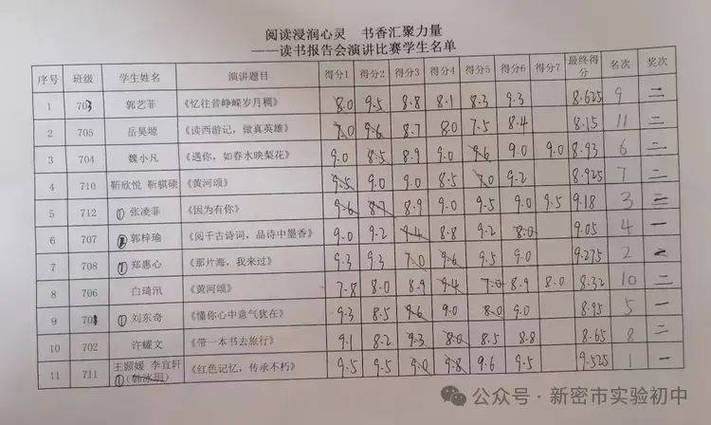 阅读浸润心灵 书香汇聚力量
——读书报告会演讲比赛学生名单
序号 班级 学生姓名 演讲题目 得分1 得分2 得分3 得分4 得分5 得分6 得分7 最终得分 名次 奖次
1 703 郭艺菲 《忆往昔峥嵘岁月稠》 8.0 9.5 8.8 8.1 8.3 9.3 8.625 9 二
2 705 岳昊 《读西游记，做真英雄》 7.0 9.6 8.7 8.0 7.5 8.4 8.15 11 二
3 704 魏小凡 《遇你，如春水映梨花》 9.0 8.5 8.9 9.0 9.6 9.0 9.0 8.93 6 二
4 710 靳欣悦 靳骐硕 《黄河颂》 9.5 9.0 9.0 8.5 7.0 9.2 8.925 7 二
5 712 ① 张凌菲 《因为有你》 9.6 8.7 8.9 9.0 9.5 9.0 9.5 9.18 3
6 707 郭梓瑜 《阅千古诗词，品诗中墨香》 9.0 9.2 9.4 8.8 9.2 8.0 9.05 4 一
7 708 ① 郑惠心 《那片海，我来过》 9.3 9.3 7.0 9.6 9.5 9.0 9.275 2
8 706 白琦汛 《黄河颂》 7.8 8.0 8.9 9.4 7.0 8.9 8.0 8.32 10 二
9 701 ① 刘东奇 《懂你心中意气犹在》 9.3 8.5 9.6 9.0 8.0 9.0 8.95 5 一
10 702 许耀文 《带一本书去旅行》 9.1 8.2 9.3 8.0 8.5 8.8 8.65 8 二
11 711 王颢媛 李宜轩 《红色记忆，传承不朽》 9.5 9.5 9.0 9.8 9.6 9.5 9.525 1 一
①
公众号·新密市实验初中